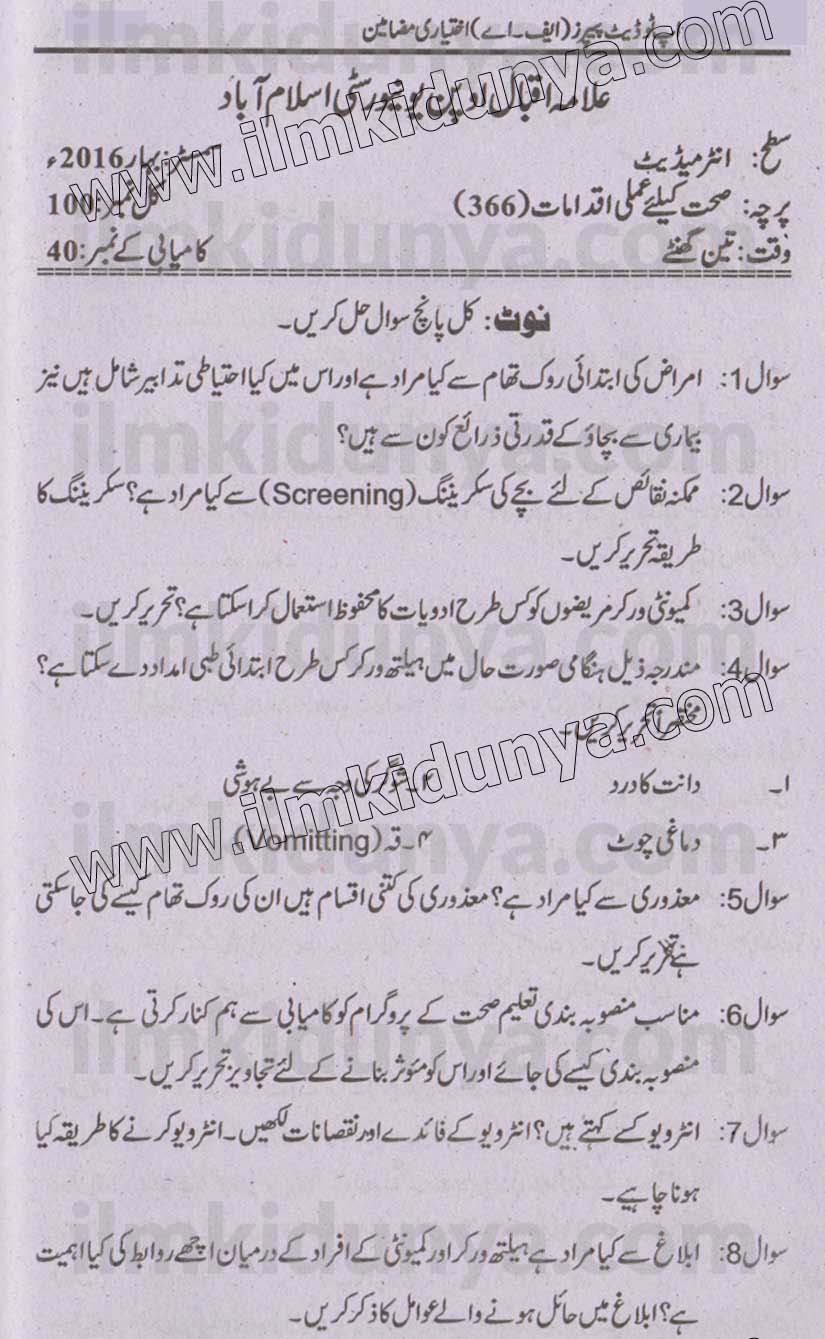 اپ ٹو ڈیٹ پیپرز (ایف۔اے) اختیاری مضامین
علامہ اقبال اوپن یونیورسٹی اسلام آباد
سطح: انٹر میڈیٹ سمسٹر: بہار 2016ء
پرچہ: صحت کیلئے عملی اقدامات (366) کل نمبر: 100
وقت: تین گھنٹے کامیابی کے نمبر: 40
نوٹ: کل پانچ سوال حل کریں۔
سوال 1: امراض کی ابتدائی روک تھام سے کیا مراد ہے اور اس میں کیا احتیاطی تدابیر شامل ہیں نیز
بیماری سے بچاؤ کے قدرتی ذرائع کون سے ہیں؟
سوال 2: ممکنہ نقائص کے لئے بچے کی سکریننگ (Screening) سے کیا مراد ہے؟ سکریننگ کا
طریقہ تحریر کریں۔
سوال 3: کمیونٹی ورکر مریضوں کو کس طرح ادویات کا محفوظ استعمال کرا سکتا ہے؟ تحریر کریں۔
سوال 4: مندرجہ ذیل ہنگامی صورت حال میں ہیلتھ ورکر کس طرح ابتدائی طبی امداد دے سکتا ہے؟
مختصراً تحریر کریں۔
۱۔ دانت کا درد ۲۔ شوگر کی وجہ سے بے ہوشی
۳۔ دماغی چوٹ ۴۔ قہ (Vomitting)
سوال 5: معذوری سے کیا مراد ہے؟ معذوری کی کتنی اقسام ہیں ان کی روک تھام کیسے کی جا سکتی
ہے تحریر کریں۔
سوال 6: مناسب منصوبہ بندی تعلیم صحت کے پروگرام کو کامیابی سے ہم کنار کرتی ہے۔ اس کی
منصوبہ بندی کیسے کی جائے اور اس کو مؤثر بنانے کے لئے تجاویز تحریر کریں۔
سوال 7: انٹرویو کسے کہتے ہیں؟ انٹرویو کے فائدے اور نقصانات لکھیں۔ انٹرویو کرنے کا طریقہ کیا
ہونا چاہیے۔
سوال 8: ابلاغ سے کیا مراد ہے ہیلتھ ورکر اور کمیونٹی کے افراد کے درمیان اچھے روابط کی کیا اہمیت
ہے؟ ابلاغ میں حائل ہونے والے عوامل کا ذکر کریں۔
www.ilmkidunya.com
www.ilmkidunya.com
ilmkidunya.com
ilmkidunya.com
ilmkidunya.com
ilmkidunya.com
ilmkidunya.com
ilmkidunya.com
ilmkidunya.com